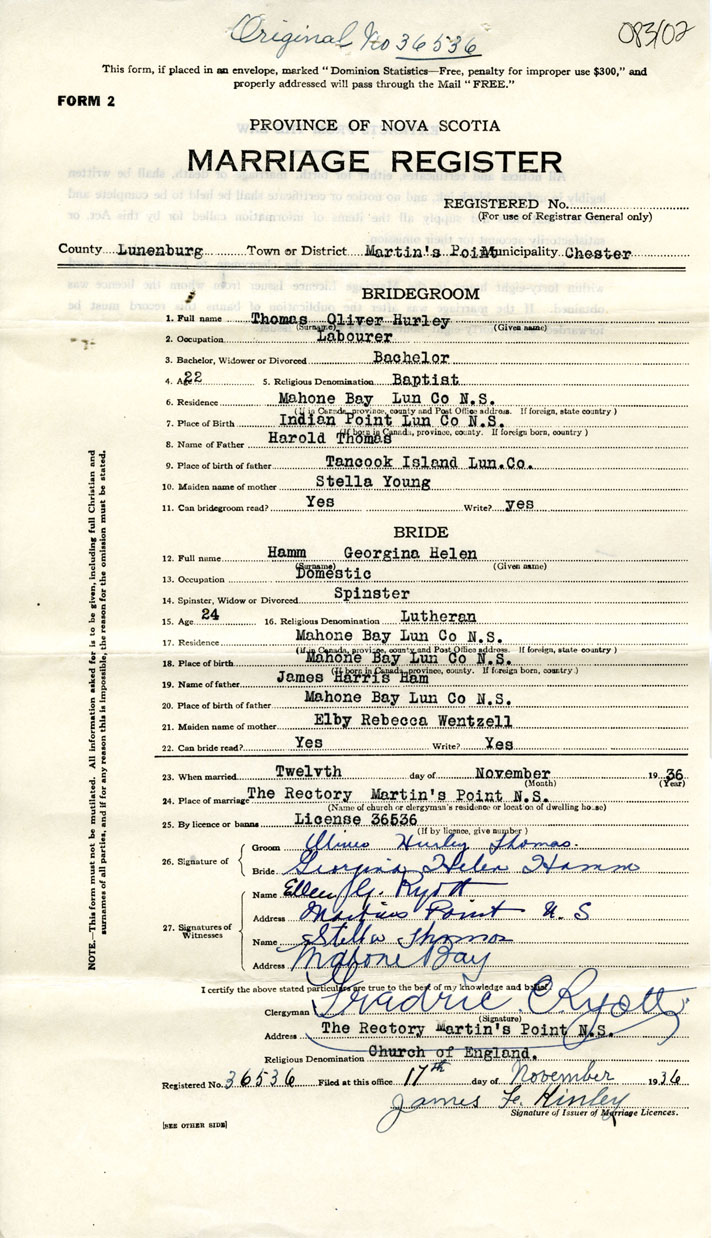 Original No 36536
083/02
This form, if placed in an envelope, marked "Dominion Statistics—Free, penalty for improper use $300," and
properly addressed will pass through the Mail "FREE."
FORM 2
PROVINCE OF NOVA SCOTIA
MARRIAGE REGISTER
REGISTERED No.
(For use of Registrar General only)
County Lunenburg Town or District Martin's Point Municipality Chester
BRIDEGROOM
1. Full name Thomas Oliver Hurley
(Surname) (Given name)
2. Occupation Labourer
3. Bachelor, Widower or Divorced Bachelor
4. Age 22 5. Religious Denomination Baptist
6. Residence Mahone Bay Lun Co N.S.
(If in Canada, province, county and Post Office address. If foreign, state country)
7. Place of Birth Indian Point Lun Co N.S.
(If born in Canada, province, county. If foreign born, country.)
8. Name of Father Harold Thomas
9. Place of birth of father Tancook Island Lun.Co.
10. Maiden name of mother Stella Young
11. Can bridegroom read? Yes Write? yes
BRIDE
12. Full name Hamm Georgina Helen
(Surname) (Given name)
13. Occupation Domestic
14. Spinster, Widow or Divorced Spinster
15. Age 24 16. Religious Denomination Lutheran
17. Residence Mahone Bay Lun Co N.S.
(if in Canada, province, county and Post Office address. If foreign, state country)
18. Place of birth Mahone Bay Lun Co N.S.
(If born in Canada, province, county. If foreign born, country.)
19. Name of father James Harris Ham
20. Place of birth of father Mahone Bay Lun Co N.S.
21. Maiden name of mother Elby Rebecca Wentzell
22. Can bride read? Yes Write? Yes
23. When married Twelvth day of November 1936
(Month) (Year)
24. Place of marriage The Rectory Martin's Point N.S.
(Name of church or clergyman's residence or location of dwelling house)
25. By licence or banns License 36536
(If by licence, give number)
26. Signature of
Groom Hurley Thomas.
Bride Georgina Helen Hamm
27. Signatures of Witnesses
Name Ellen G. Ryott
Address Martins Point N. S
Name Stella Thomas
Address Mahone Bay
I certify the above stated particulars are true to the best of my knowledge and belief.
Clergyman Fradric C Ryott
(Signature)
Address The Rectory Martin's Point N.S.
Religious Denomination Church of England.
Registered No. 36536 Filed at this office 17th day of November 1936
James Fe. Kinley
Signature of Issuer of Marriage Licences.
[SEE OTHER SIDE]
NOTE.—This form must not be mutilated. All information asked for is to be given, including full Christian and
surnames of all parties, and if for any reason this is impossible, the reason for the omission must be stated.